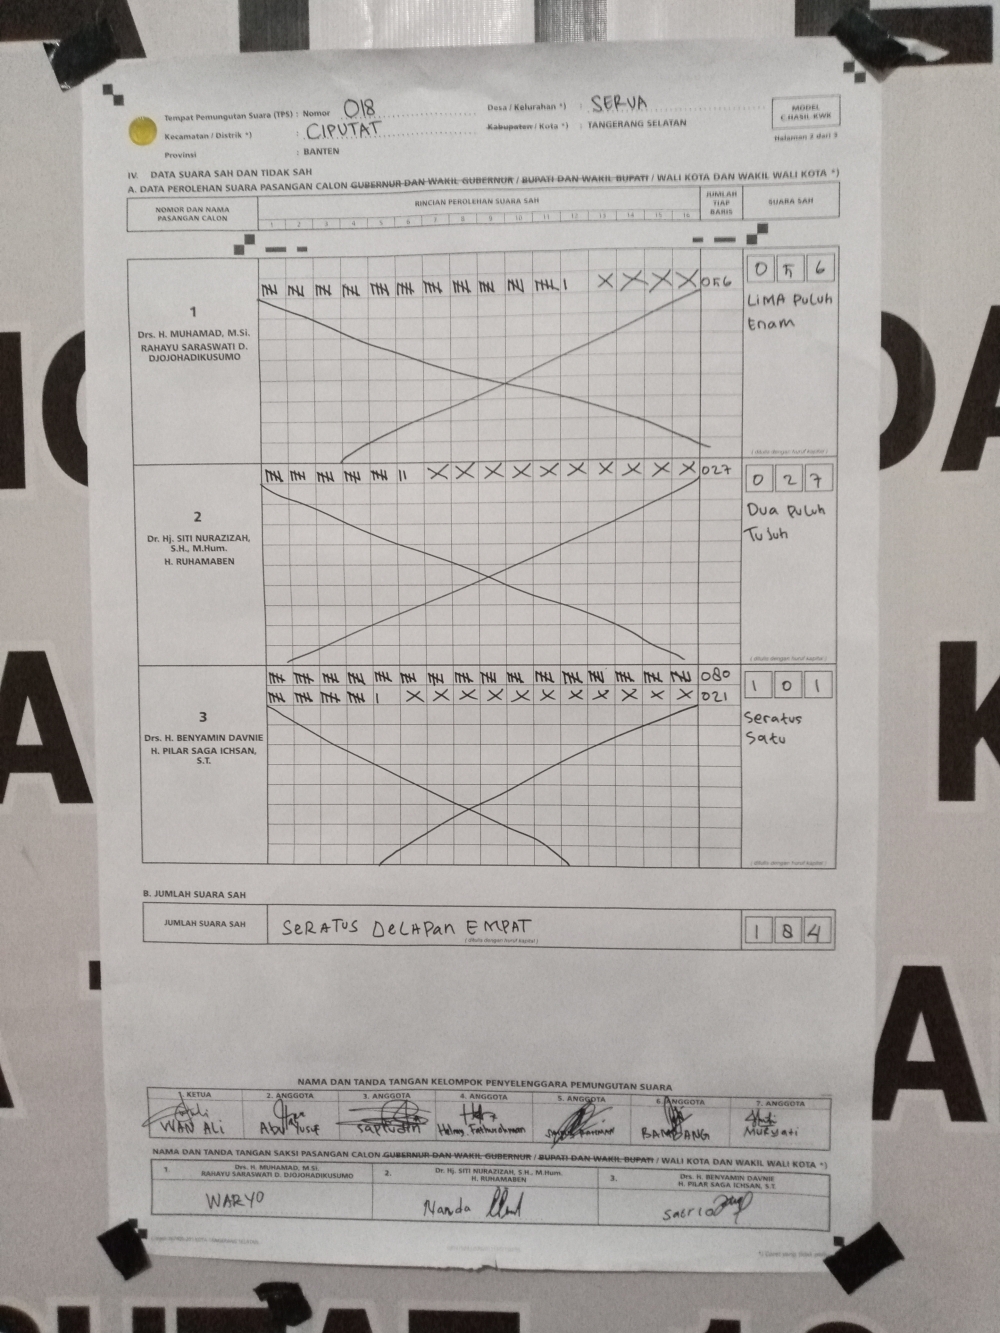 Tempat Pemungutan Suara (TPS) : Nomor 018
Desa / Kelurahan *) : SERUA
Kecamatan / Distrik *) : CIPUTAT
Kabupaten / Kota *) : TANGERANG SELATAN
Provinsi : BANTEN
MODEL
C.HASIL-KWK
Halaman 2 dari 3
IV. DATA SUARA SAH DAN TIDAK SAH
A. DATA PEROLEHAN SUARA PASANGAN CALON GUBERNUR DAN WAKIL GUBERNUR / BUPATI DAN WAKIL BUPATI / WALI KOTA DAN WAKIL WALI KOTA *)
NOMOR DAN NAMA
PASANGAN CALON
RINCIAN PEROLEHAN SUARA SAH
1 2 3 4 5 6 7 8 9 10 11 12 13 14 15 16
JUMLAH
TIAP
BARIS
SUARA SAH
1
Drs. H. MUHAMAD, M.Si.
RAHAYU SARASWATI D.
DJOJOHADIKUSUMO
056
0 5 6
LIMA PULUH
Enam
(ditulis dengan huruf kapital)
2
Dr. Hj. SITI NURAZIZAH,
S.H., M.Hum.
H. RUHAMABEN
027
0 2 7
Dua puluh
Tujuh
(ditulis dengan huruf kapital)
3
Drs. H. BENYAMIN DAVNIE
H. PILAR SAGA ICHSAN,
S.T.
080
021
1 0 1
Seratus
Satu
(ditulis dengan huruf kapital)
B. JUMLAH SUARA SAH
JUMLAH SUARA SAH
SERATUS DELAPAN EMPAT
(ditulis dengan huruf kapital)
1 8 4
NAMA DAN TANDA TANGAN KELOMPOK PENYELENGGARA PEMUNGUTAN SUARA
1. KETUA 2. ANGGOTA 3. ANGGOTA 4. ANGGOTA 5. ANGGOTA 6. ANGGOTA 7. ANGGOTA
WAN ALI Abu Yusuf Sapludin Helmy Fathurohman BAMBANG Muryati
NAMA DAN TANDA TANGAN SAKSI PASANGAN CALON GUBERNUR DAN WAKIL GUBERNUR / BUPATI DAN WAKIL BUPATI / WALI KOTA DAN WAKIL WALI KOTA *)
1. Drs. H. MUHAMAD, M.Si.
RAHAYU SARASWATI D. DJOJOHADIKUSUMO
2. Dr. Hj. SITI NURAZIZAH, S.H., M.Hum.
H. RUHAMABEN
3. Drs. H. BENYAMIN DAVNIE
H. PILAR SAGA ICHSAN, S.T.
WARYO
Nanda
Satrio